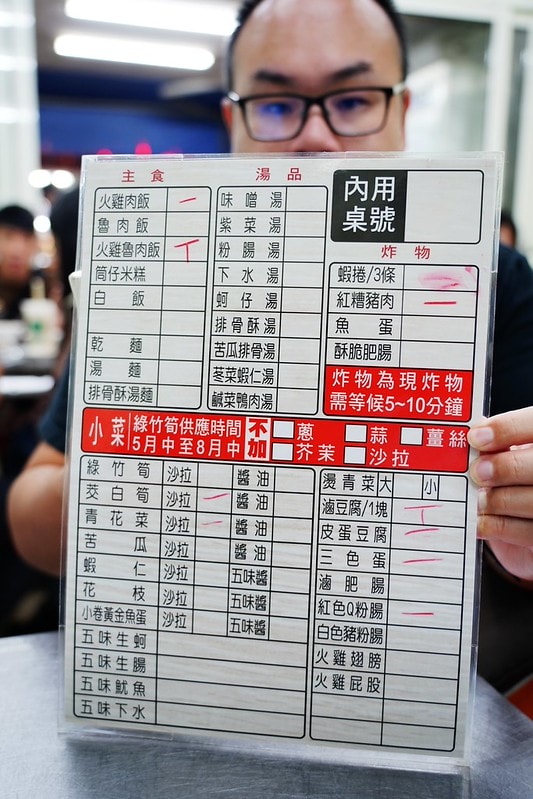 主食
火雞肉飯 一
魯肉飯
火雞魯肉飯 丅
筒仔米糕
白飯
乾麵
湯麵
排骨酥湯麵
湯品
味噌湯
紫菜湯
粉腸湯
下水湯
蚵仔湯
排骨酥湯
苦瓜排骨湯
苳菜蝦仁湯
鹹菜鴨肉湯
內用
桌號
炸物
蝦捲/3條
紅糟豬肉 一
魚蛋
酥脆肥腸
炸物為現炸物
需等候5~10分鐘
小菜
綠竹筍供應時間
5月中至8月中
不加
蔥 蒜 薑絲
芥茉 沙拉
綠竹筍 沙拉 醬油
茭白筍 沙拉 一 醬油
青花菜 沙拉 一 醬油
苦瓜 沙拉 醬油
蝦仁 沙拉 五味醬
花枝 沙拉 五味醬
小卷黃金魚蛋 沙拉 五味醬
五味生蚵
五味生腸
五味魷魚
五味下水
燙青菜 大 小
滷豆腐/1塊 丅
皮蛋豆腐 一
三色蛋 一
滷肥腸
紅色Q粉腸 一
白色豬粉腸
火雞翅膀
火雞屁股